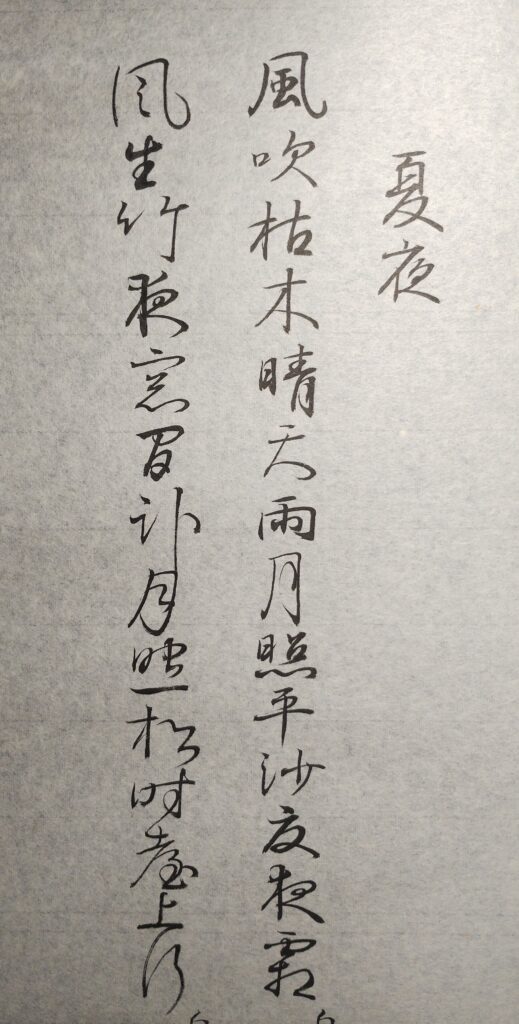 夏夜
風吹枯木晴天雨月照平沙夏夜霜
風生竹夜窓間臥月照松時臺上行